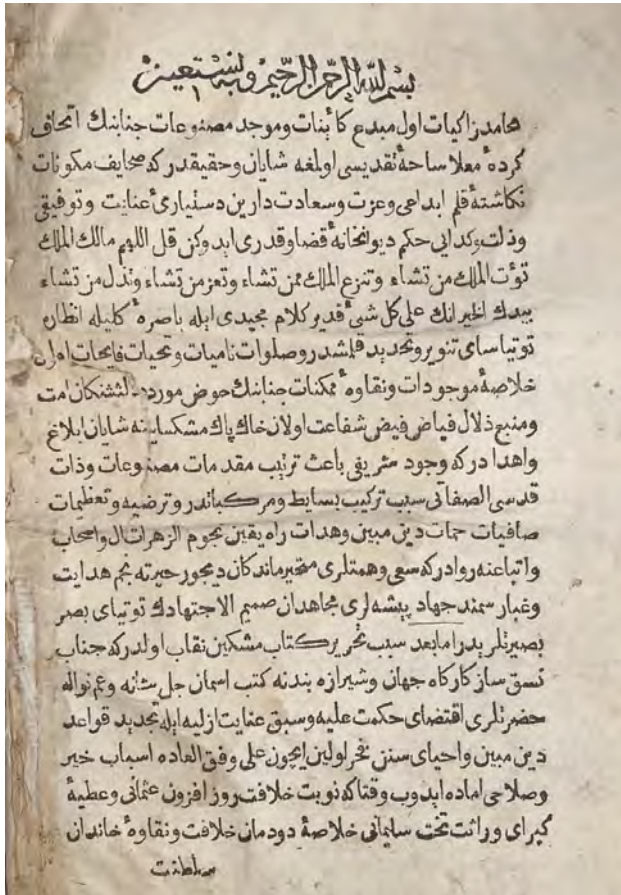 بسم الله الرحمن الرحيم وبه نستعين
محامد زاكيات اول مبدع كائنات وموجد مصنوعات جنابنك اتحاف
كردهٔ معلا ساحهٔ تقديسى اولمغه شايان وحقيقدركه صحايف مكونات
نكاشتهٔ قلم ابداعى وعزت وسعادت دارين دستيارئ عنايت وتوفيقى
وذلت وكدايى حكم ديوانخانهٔ قضا وقدرى ايدوكن قل اللهم مالك الملك
تؤت الملك من تشاء وتنزع الملك ممن تشاء وتعز من تشاء وتذل من تشاء
بيدك الخير انك على كل شئ قدير كلام مجيدى ايله باصرهٔ كليله انظاره
توتياساى تنوير وتحديد قلمشدر وصلوات ناميات وتحيات فايحات اول
خلاصهٔ موجودات ونقاوهٔ ممكنات جنابنك حوض مورد لتشنكان امت
ومنبع ذلال فياض فيض شفاعت اولان خاك پاك مشكسايينه شايان ابلاغ
واهدا دركه وجود شريفى باعث ترتيب مقدمات مصنوعات وذات
قدسى الصفاتى سبب تركيب بسايط ومركباتدر وترضيه وتعظيمات
صافيات حمات دين مبين وهدات راه يقين نجوم الزهرات ال واصحاب
واتباعنه روادركه سعى وهمتلرى متحيرماندكان ديجور حيرته نجم هدايت
وغبار سمند جهاد پيشه لرى مجاهدان صميم الاجتهادك توتياى بصر
بصيرتلريدر امابعد سبب تحرير كتاب مشكين نقاب اولدركه جناب
نسق ساز كاركاه جهان وشيرازه بندنه كتب اسمان جل شانه وعم نواله
حضرتلرى اقتضاى حكمت عليه وسبق عنايت ازليه ايله تجديد قواعد
دين مبين واحياى سنن فخر اولين ايچون على وفق العاده اسباب خير
وصلاحى اماده ايدوب وقتاكه نوبت خلافت روز افزون عثمانى وعطيهٔ
كبراى وراثت تخت سليمانى خلاصهٔ دودمان خلافت ونقاوهٔ خاندان
سلطنت